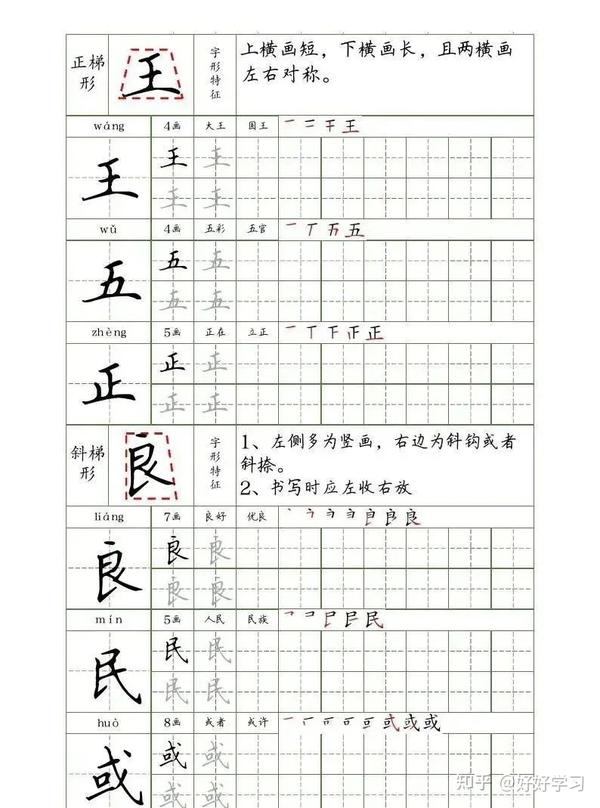 正梯形 王 字形特征 上横画短，下横画长，且两横画
左右对称。
wáng 4画 大王 国王 一 二 干 王
王 王 王
王 王
wǔ 4画 五彩 五官 一 丅 五 五
五 五 五
五 五
zhèng 5画 正在 立正 一 丅 下 正 正
正 正 正
正 正
斜梯形 良 字形特征 1、左侧多为竖画，右边为斜钩或者
斜捺。
2、书写时应左收右放
liáng 7画 良好 优良 良
良 良 良
良 良
mín 5画 人民 民族 民
民 民 民
民 民
huò 8画 或者 或许 或 或 或
或 或 或
或 或
知乎 @好好学习